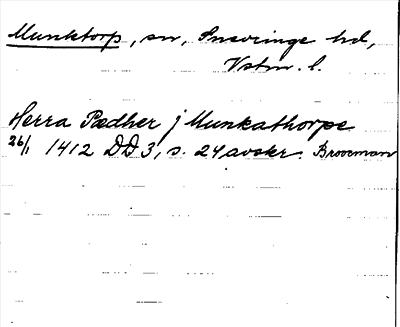 Munktorp, sn, Snevringe hd,
Vstm. l.
Herra Pædher j Munkathorpe
26/1 1412 DD 3, s. 24 avskr. Brocman